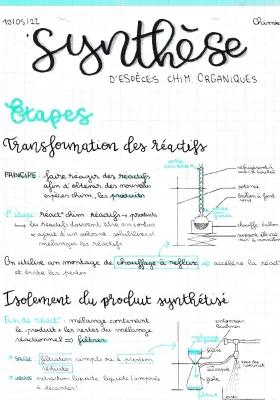 10/05/22
Chimie
Synthèse
D'ESPÈCES CHIM. ORGANIQUES
Étapes
Transformation des réactifs
PRINCIPE : faire réagir des réactifs
afin d'obtenir des nouvelles
espèces chim, les produits
1° étape : réact° chim réactifs → produits
les réactifs doivent être en contact
→ ajout d'un solvant : solubiliser et
mélanger les réactifs
réfrigérant à
potence
ballon à fond
rond
chauffe ballon
support
On utilise un montage de chauffage à reflux → accélère la réact°
et évite les pertes
Isolement du produit synthétisé
Fin de réact° : mélange contenant
le produit + les restes du mélange
réactionnel → filtrer
solide filtration simple ou à pression
réduite
extraction liquide liquide (ampoule
à décanter)
entonnoir
Büchner
filtre